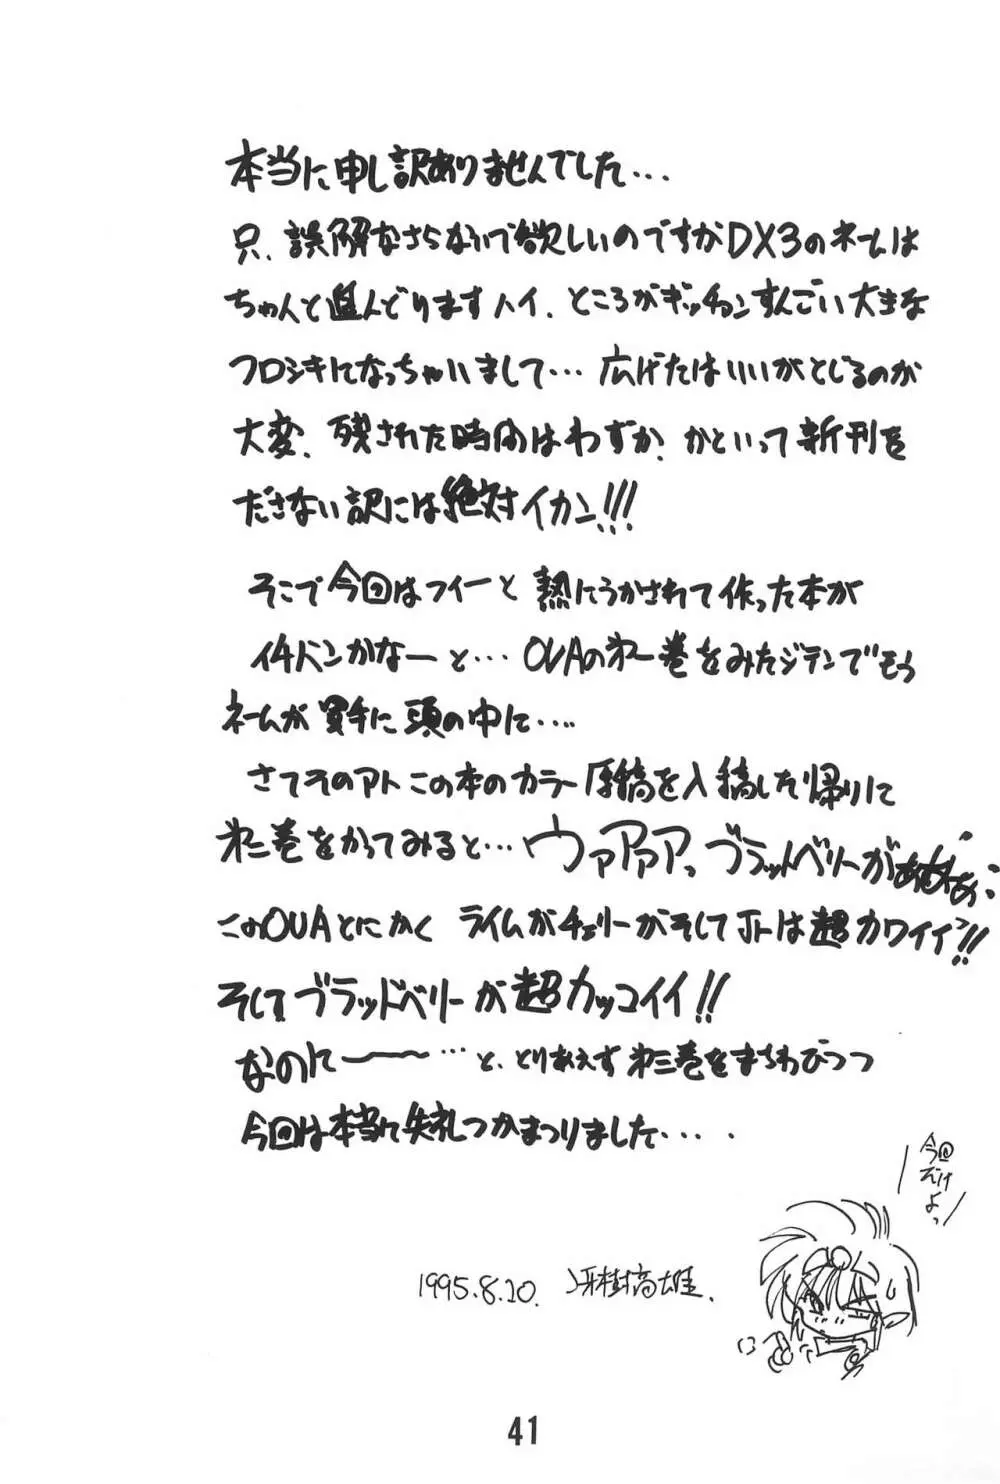 本当に申し訳ありませんでした...
只、誤解なさらないで欲しいのですがDX3のネームは
ちゃんと進んどりますハイ、ところがギッチョンすんごい大きな
フロシキになっちゃいまして... 広げたはいいがとじるのが
大変、残された時間はわずか、かといって新刊を
ださない訳には絶対イカン!!!
そこで今回はフイーと熱にうかされて作った本が
イチバンかなーと... OVAの第一巻をみたジテンでもう
ネームが勝手に頭の中に....
さてそのアトこの本のカラー原稿を入稿した帰りに
第二巻をかってみると...ウァアァアっブラッドベリーがああああ
このOVAとにかくライムがチェリーがそしてJrは超カワイイ!!
そしてブラッドベリーが超カッコイイ!!
なのに〜〜...と、とりあえず第三巻をまちわびつつ
今回は本当に失礼つかまつりました....
今回
だけ
よっ
1995.8.10. 冴樹高雄.
41